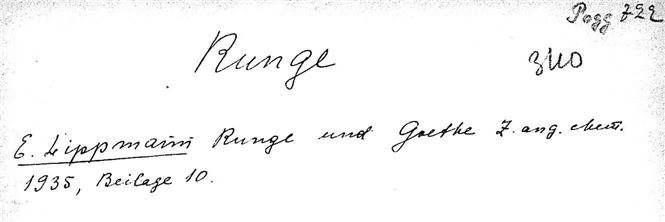 Pogg 722
Runge
3110
E. Lippmann Runge und Goethe Z. ang. chem.
1935, Beilage 10.